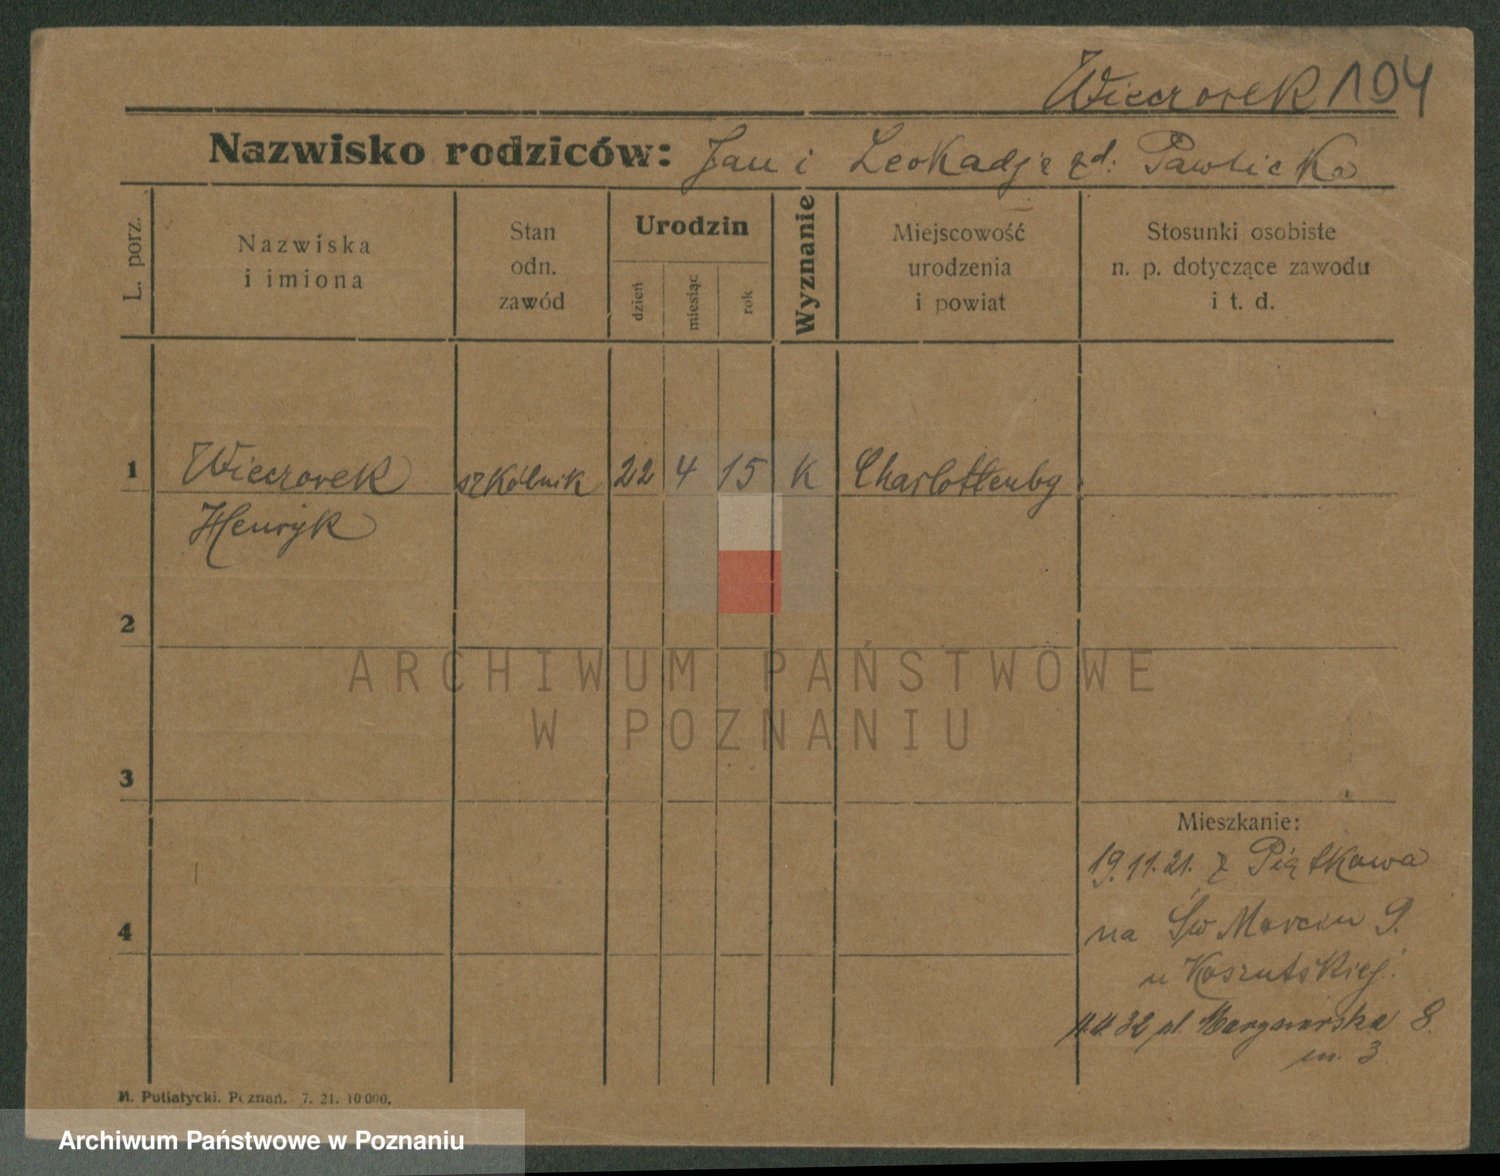 Wieczorek 194
Nazwisko rodziców: Jan i Leokadja zd. Pawlicka
L. porz.
Nazwiska
i imiona
Stan
odn.
zawód
Urodzin
dzień
miesiąc
rok
Wyznanie
Miejscowość
urodzenia
i powiat
Stosunki osobiste
n. p. dotyczące zawodu
i t. d.
1 Wieczorek szkólnik 22 4 15 K Charlottenbg
Henryk
2
ARCHIWUM PAŃSTWOWE
W POZNANIU
3
Mieszkanie:
19.11.21. z Piątkowa
4
na Św Marcin 9.
u Koszutskiej.
32 8.
m. 3
M. Putiatycki. Poznań. 7. 21. 10 000.
Archiwum Państwowe w Poznaniu